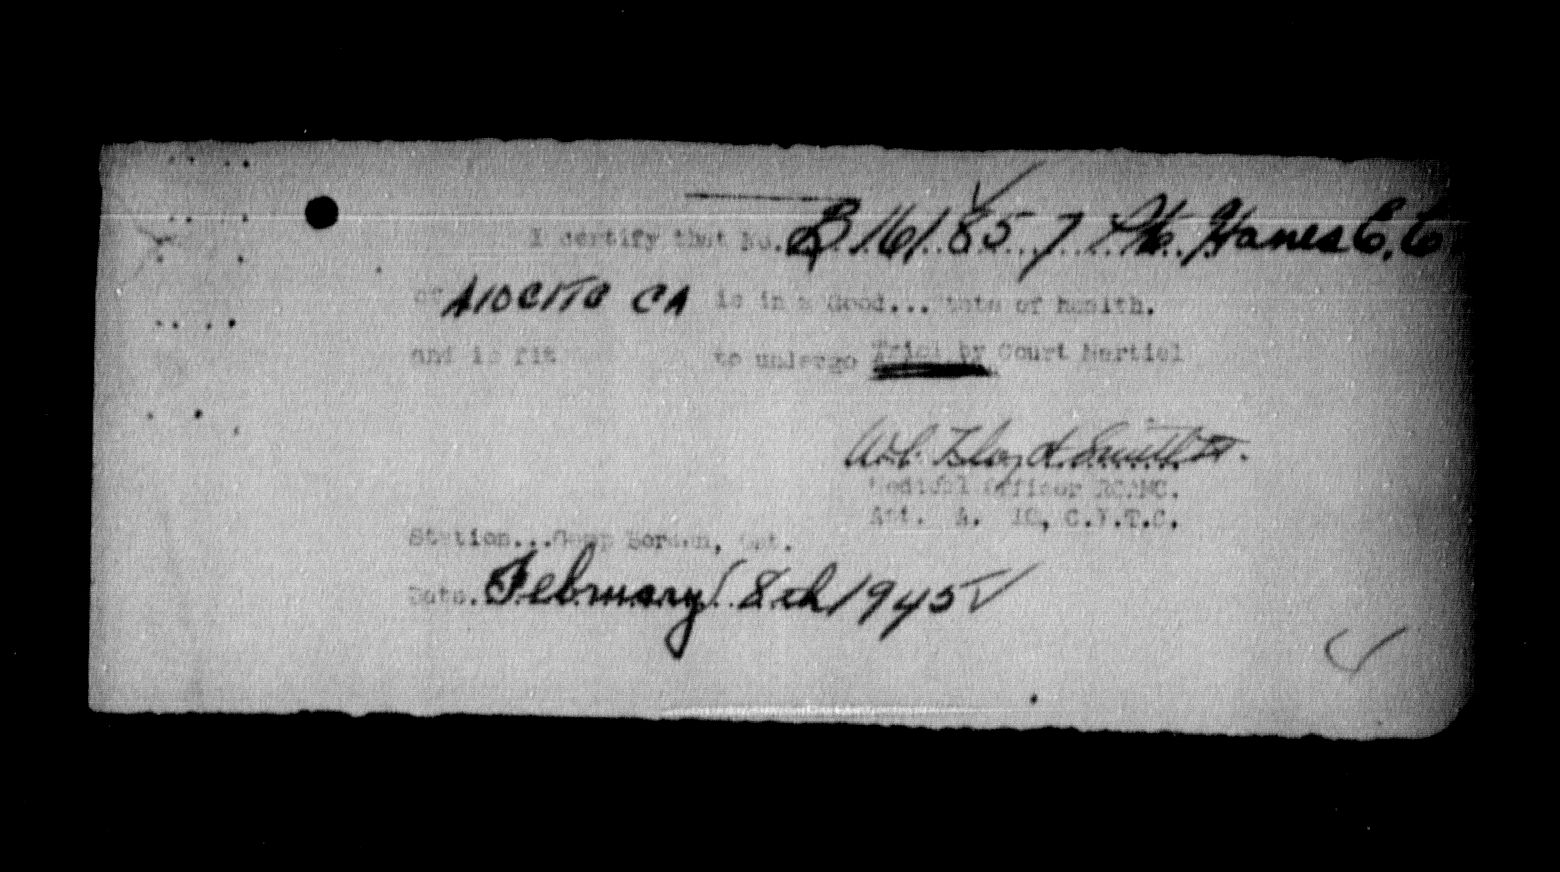 I certify that No. B 161857 Pte. Hanes E. C.
of A10 CITC CA is in a Good... state of health.
and is fit to undergo Trial by Court Martial
Lloyd Smith
Medical Officer RCAMC.
A. 10, C.I.T.C.
Station...Camp Borden, Ont.
Date. February 8th 1945